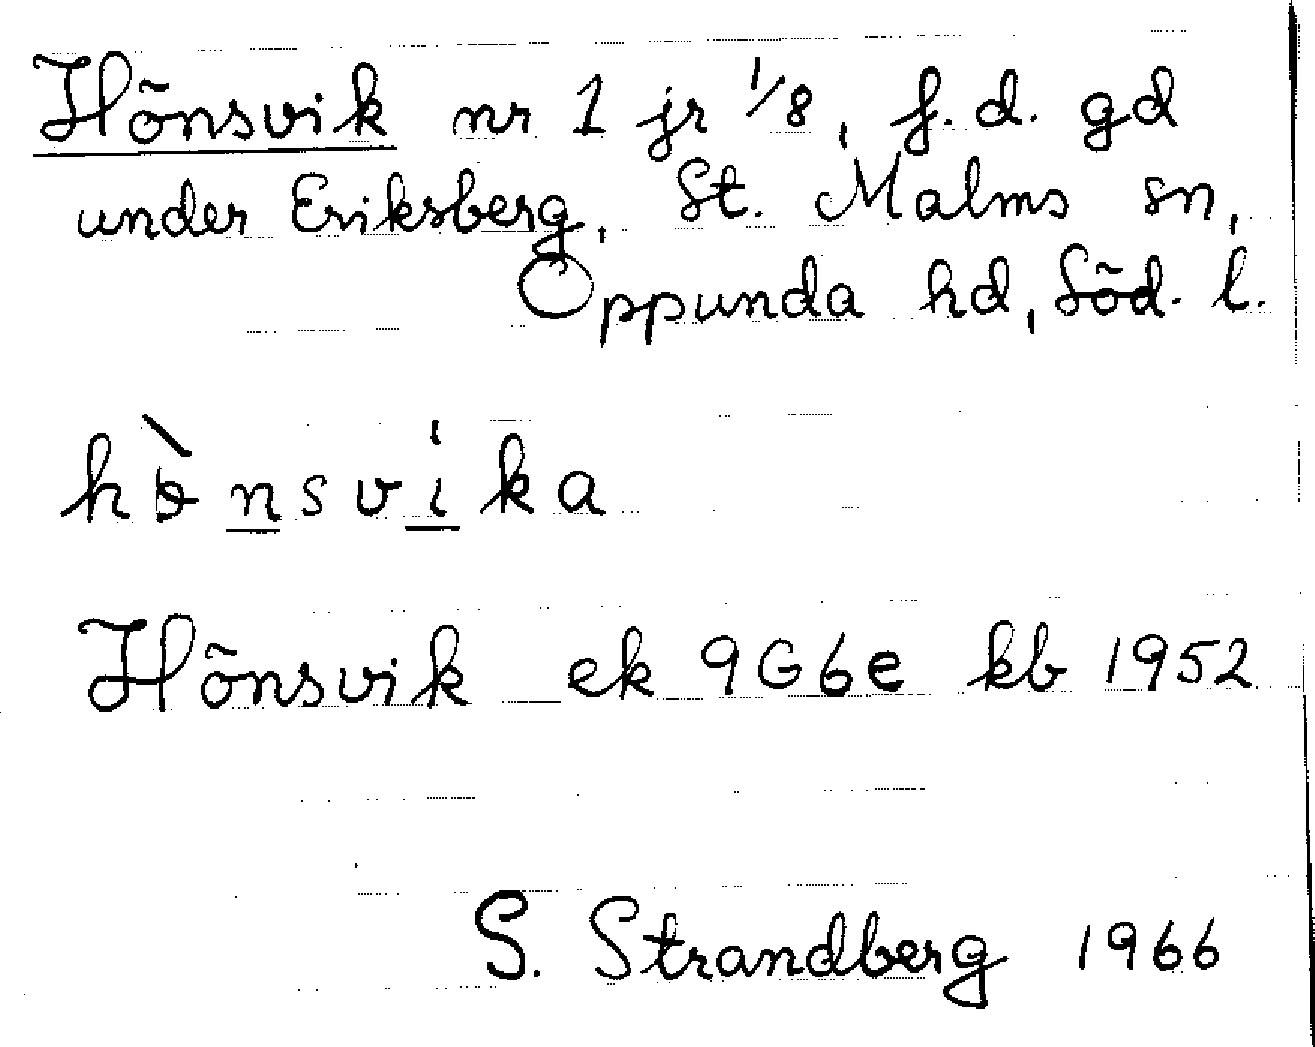 Hönsvik nr 1 jr 1/8, f.d. gd
under Eriksberg, St. Malms sn,
Oppunda hd, Söd. l.
hò̵nsvika
Hönsvik ek 9G6e kb 1952
S. Strandberg 1966